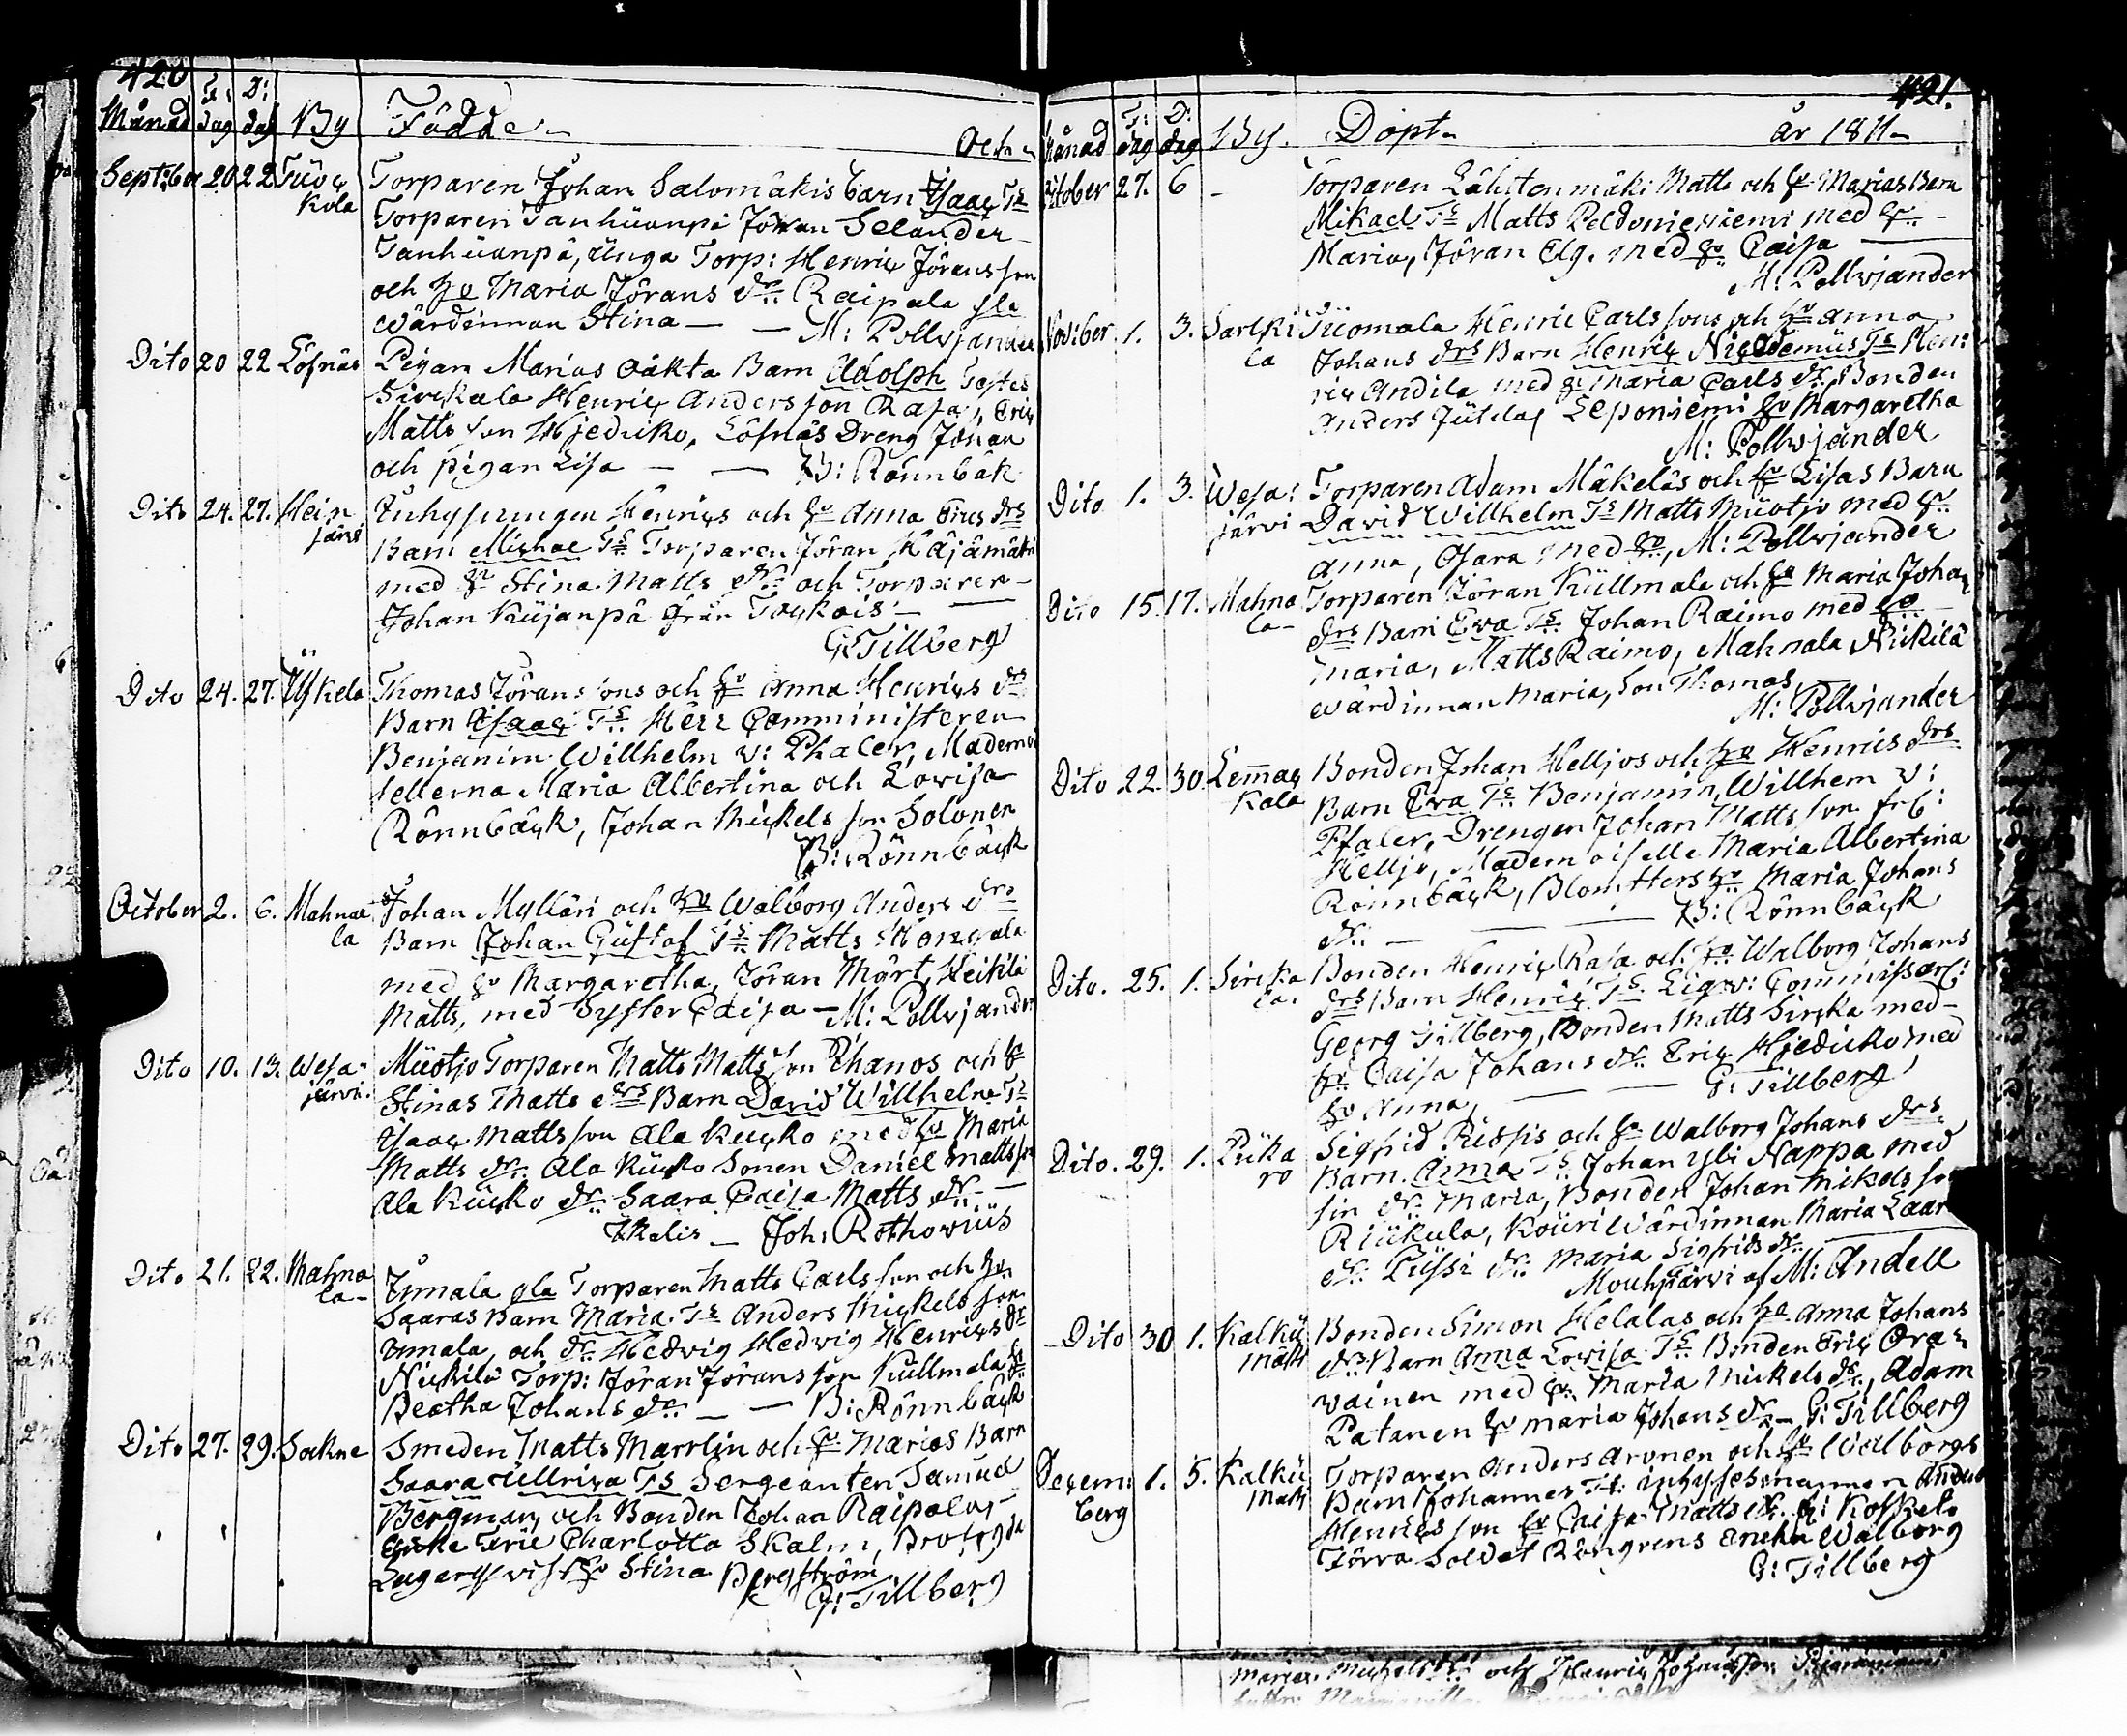 420
Månad F: dag D: dag By Födde och
Septber 20 22 Tiuckola Torparen Johan Salomäkis barn Isaac Ts
Torparen Tanhuanpä Johan Selander
Tanhuanpä, Unga Torp: Henric Jörans son
och hu Maria Jörans dr Raipala gla
wärdinnan Stina — — M: Pollvjander
Dito 20 22 Löfnäs Pigan Marias oäkta Barn Adolph Testes
Sirckala Henric Anders son Rasa, Eric
Matts son Hjeduko, Löfnäs Dreng Johan
och pigan Lisa — — B: Rönnbäk
Dito 24. 27. Heinjärvi Henrics och hu Anna Erics drs
Barn Michae Ts Torparen Jöran Kåjamäki
med hu Stina Matts dr och Torparen
Johan Kujanpä från —
G: Tillberg
Dito 24. 27. Uskela Thomas Jörans sons och hu Anna Henrics drs
Barn Isaac Ts Herr Comministeren
Benjamin Willhelm v: Phaler, Mademoi
sellerna Maria Albertina och Lovisa
Rönnbäck, Johan Mickels son Solonen
B: Rönnbäck
October 2. 6. Mahnala Johan Mylläri och hu Walborg Anders drs
Barn Johan Gustaf Ts Matts Hongala
med hu Margaretha, Jöran Märt, Heikkilä
Matts, med Syster Caisa — M: Pollvjander
Dito 10. 13. Wesajärvi. Muotjo Torparen Matts Matts son Rhanos och hu
Stinas Matts drs Barn David Willhelm Ts
Isaac Matts son Ala Kucko med hu Maria
Matts dr. Ala Kucko Sonen Daniel Matts son
Ala Kucko dr Saara Caisa Matts dr. —
Ikalis — Joh: Rothovius
Dito 21. 22. Mahnala Inmala gla Torparen Matts Carls son och hu
Saaras Barn Maria Ts Anders Mickels son
Inmala, och dr Hedvig Hedwig Henrics dr
Nickilä Torp: Jöran Jörans son Kullmala hu
Beatha Johans dr — — B: Rönnbäck
Dito 27. 29. Sackne Smeden Matts Marrlin och hu Marias Barn
Saara Ullrica Ts Sergeanten Samuel
Bergman, och Bonden Johan Raipalas
Enke Fru Charlotta Skalm,
Lagerqvist hu Stina Bergström
G: Tillberg
421.
Månad F: dag D: dag By. Döpt år 1811
October 27. 6 - Torparen Lähtenmäki Matts och hu Marias Barn
Mikael Ts Matts Peldoniemi med hu
Maria, Jöran Elg. med hu Caisa
M: Pollvjander
Noviber 1. 3. Sarckila Tuomala Henric Carls sons och hu Anna
Johans drs Barn Henric Nicodemus Ts Hen:
ric Andila med hu Maria Carls dr, Bonden
Anders Leponiemi hu Margaretha
M: Pollvjander
Dito 1. 3. Wesa:järvi Torparen Adam Mäkeläs och hu Lisas Barn
David Willhelm Ts Matts Muotjo med hu
Anna, Osara med hu, M: Pollvjander
Dito 15. 17. Mahnala Torparen Jöran Kullmala och hu Maria Johans
drs Barn Eva Ts Johan Raimo med hu
Maria, Matts Raimo, Mahnala Nickilä
wärdinnan Maria, Son Thomas
M: Pollvjander
Dito 22. 30. Lemackala Bonden Johan Helljos och hu Henrics drs
Barn Eva Ts Benjamin, Willhem v:
Pfaler, Drengen Johan Matts son
Helljo, Mademoiselle Maria Albertina
Rönnbäck, hu Maria Johans
dr. — — B: Rönnbäck
Dito. 25. 1. Sirckala. Bonden Henric Rasa och hu Walborg Johans
drs Barn Henric Ts
Georg Tillberg, Bonden Matts Sircka med
hu Caisa Johans dr. Eric Hjeduko med
hu Anna, — — G: Tillberg
Dito. 29. 1. Sigfrid och hu Walborg Johans drs
Barn. Anna Ts Johan Yli Nappa med
sin dr. Maria, Bonden Johan Mikels son
Riuckula, Kouri wärdinnan Maria
dr. Pussi dr. Maria Sigfrids dr.
Mouhijärvi af M: Andell
Dito 30 1. Kalkumäki Bonden Simon Helalas och hu Anna Johans
drs Barn Anna Lovisa Ts Bonden Eric Ora
wainen med hu Maria Mickels dr, Adam
Patanen hu Maria Johans dr — G: Tillberg
Decem:berg 1. 5. Kalkumäki Torparen Anders Aronen och hu Walborgs
Barn Johannes Ts: inhysesmannen Anders
Henrics son hu Caisa Matts dr. Koskela
Soldat Röngrens encka Walborg
G: Tillberg
Marias Michels dr och Henric Johansson